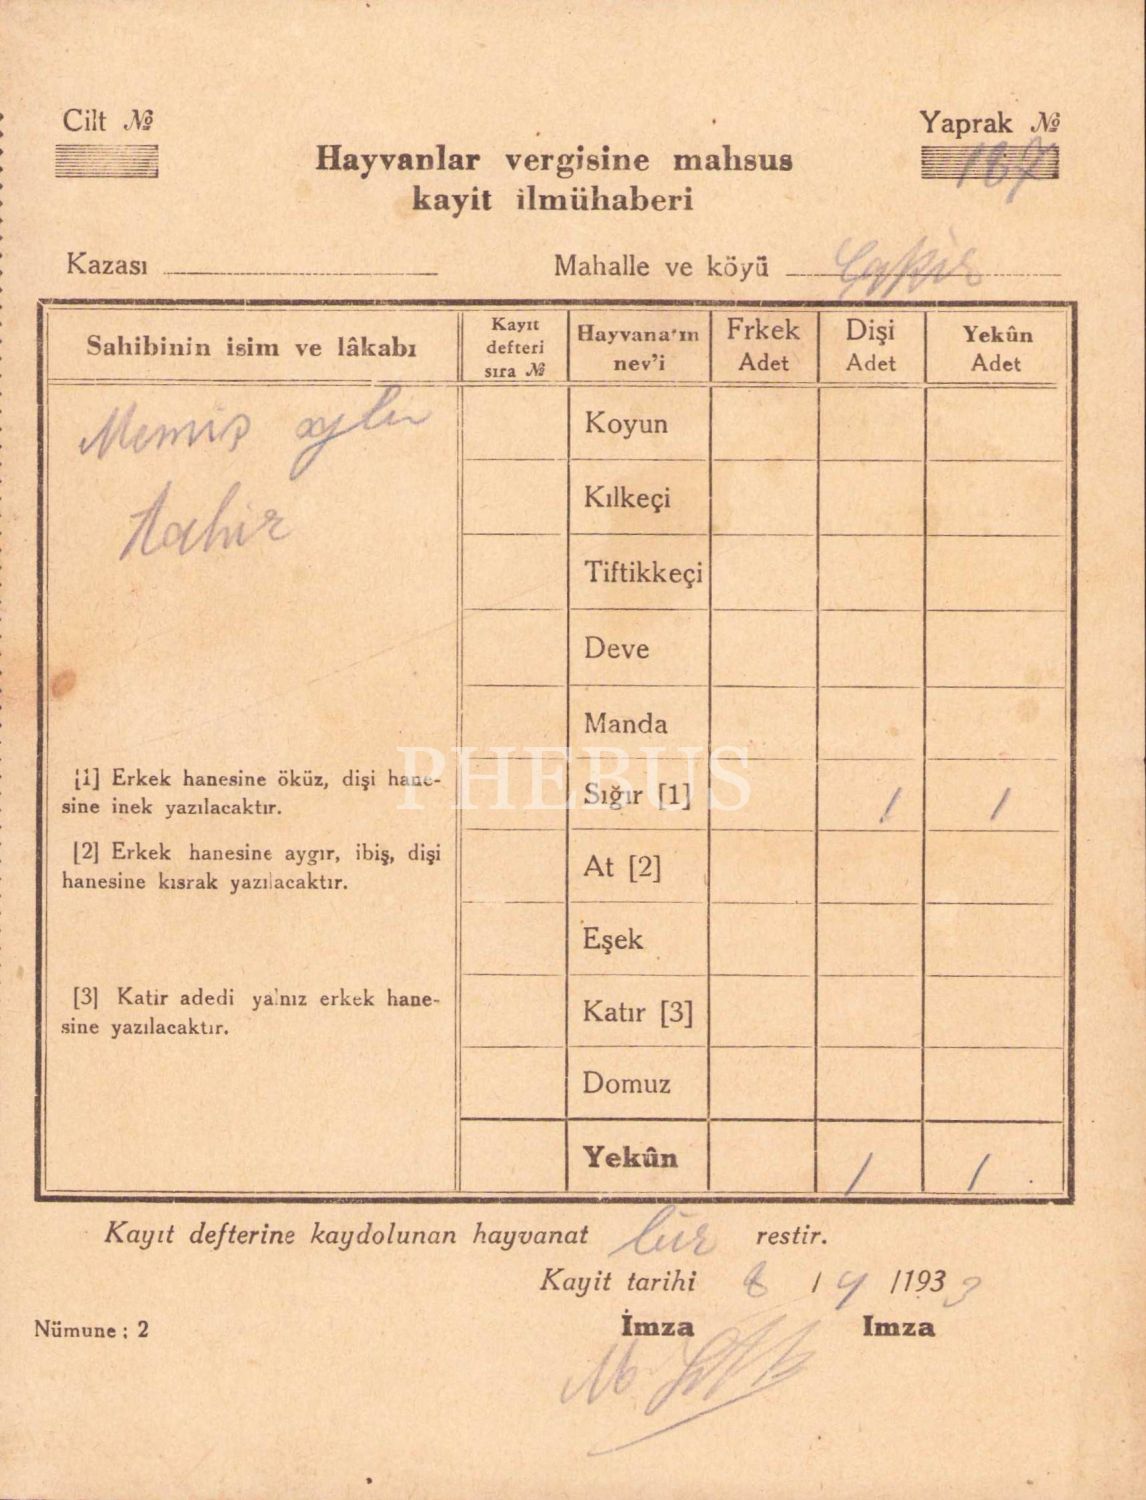 Cilt №
Yaprak №
167
Hayvanlar vergisine mahsus
kayit ilmühaberi
Kazası
Mahalle ve köyü
Sahibinin isim ve lâkabı
Kayıt
defteri
sıra №
Hayvana'ın
nev'i
Frkek
Adet
Dişi
Adet
Yekûn
Adet
Memiş oğlu
Tahir
Koyun
Kılkeçi
Tiftikkeçi
Deve
Manda
Sığır [1] 1 1
At [2]
Eşek
Katır [3]
Domuz
Yekûn 1 1
[1] Erkek hanesine öküz, dişi hane-
sine inek yazılacaktır.
[2] Erkek hanesine aygır, ibiş, dişi
hanesine kısrak yazılacaktır.
[3] Katir adedi yalnız erkek hane-
sine yazılacaktır.
PHEBUS
Kayıt defterine kaydolunan hayvanat bir restir.
Kayit tarihi 8 / 4 /1933
Nümune : 2
İmza Imza